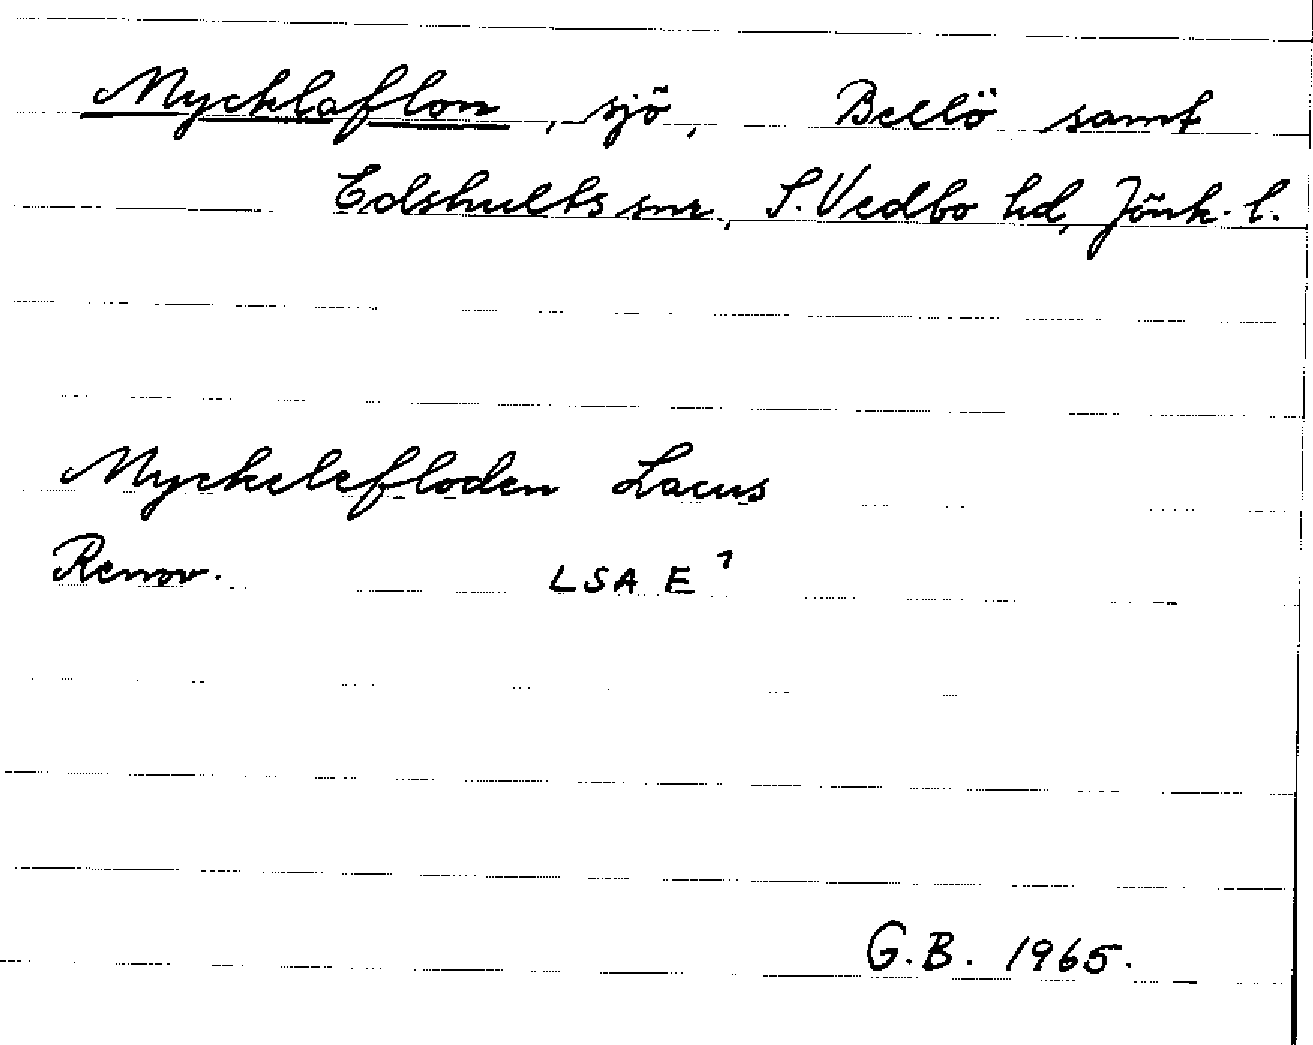 Mycklaflon, sjö, Bellö samt
Edshults snr, S. Vedbo hd, Jönk. l.
Myckelefloden Lacus
Renov. LSA E⁷
G.B. 1965.